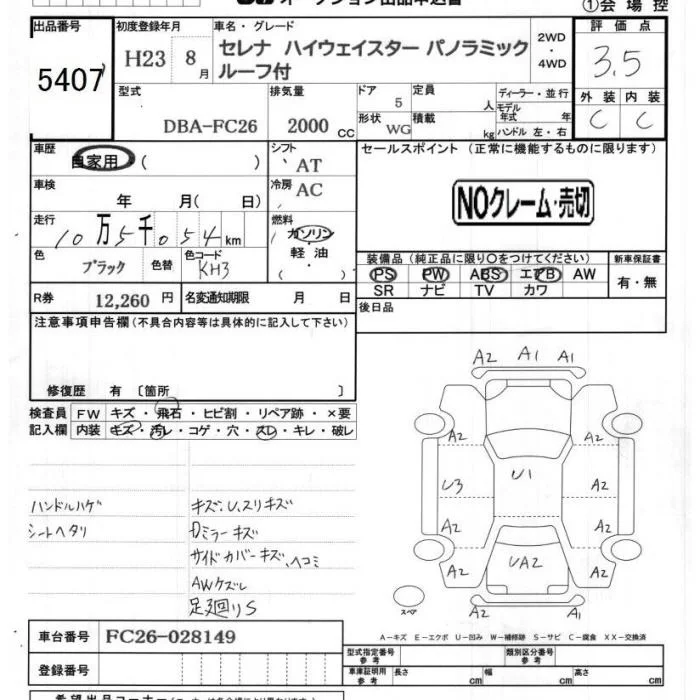 オークション出品申込書
①会場控
出品番号 初度登録年月 車名・グレード 評価点
5407 H23 8月 セレナ ハイウェイスター パノラミックルーフ付 2WD・4WD 3.5
型式 排気量 ドア 5 定員 人 ディーラー・並行 外装 内装
DBA-FC26 2000cc 形状 WG 積載 kg モデル年式 年 ハンドル 左・右 C C
車歴 自家用 ( ) シフト AT セールスポイント (正常に機能するものに限ります)
車検 年 月( 日) 冷房 AC
NOクレーム・売切
走行 10万5千054km 燃料 ガソリン・軽油・( )
色 ブラック 色替 色コード KH3
装備品 (純正品に限り○をつけてください) 新車保証書
PS PW ABS エアB AW 有・無
SR ナビ TV カワ
R券 12,260円 名変通知期限 月 日 後日品
注意事項申告欄(不具合内容等は具体的に記入して下さい)
修復歴 有 〔箇所 〕
検査員記入欄 FW キズ・飛石・ヒビ割・リペア跡・×要
内装 キズ・汚レ・コゲ・穴・スレ・キレ・破レ
ハンドルハゲ キズ.U.スリキズ
シートヘタリ Dミラーキズ
サイドカバーキズ、ヘコミ
AWケズレ
足廻りS
A2 A1 A1
A2 A2
U3 U1 A2
A2 A2
A2 UA2 A2
A2 A1
スペア
A－キズ E－エクボ U－凹み W－補修跡 S－サビ C－腐食 XX－交換済
車台番号 FC26-028149
登録番号
型式指定番号 参考 類別区分番号 参考
車庫証明用 参考 長さ cm 幅 cm 高さ cm
希望出品コーナー